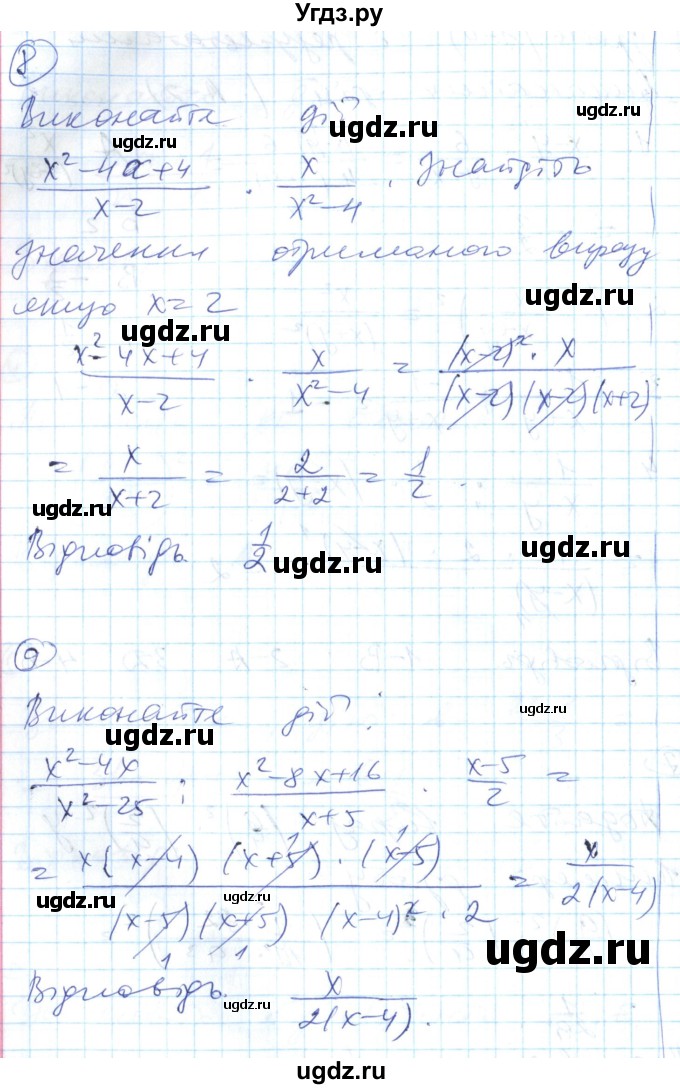 Угдз.ру
8
Виконайте дії
ugdz.ru ugdz.ru
(x²-4x+4)/(x-2) · x/(x²-4). Знайдіть
ugdz.ru
значення отриманого виразу
якщо x=2 ugdz.ru
ugdz.ru
(x²-4x+4)/(x-2) · x/(x²-4) = ((x-2)²·x)/((x-2)(x-2)(x+2))
ugdz.ru
= x/(x+2) = 2/(2+2) = 1/2.
ugdz.ru ugdz.ru
Відповідь 1/2
ugdz.ru ugdz.ru ugdz.ru
9
Виконайте дії:
ugdz.ru ugdz.ru
(x²-4x)/(x²-25) : (x²-8x+16)/(x+5) · (x-5)/2 =
ugdz.ru ugdz.ru
= (x(x-4) (x+5)·(x-5))/((x-5)(x+5) (x-4)²·2) = x/(2(x-4))
1 1
1 1
ugdz.ru ugdz.ru ugdz.ru
Відповідь x/(2(x-4)).
ugdz.ru ugdz.ru
ugdz.ru